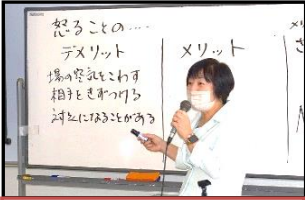 怒ることの....
デメリット
メリット
場の空気をこわす
相手をきずつける
対立になることがある